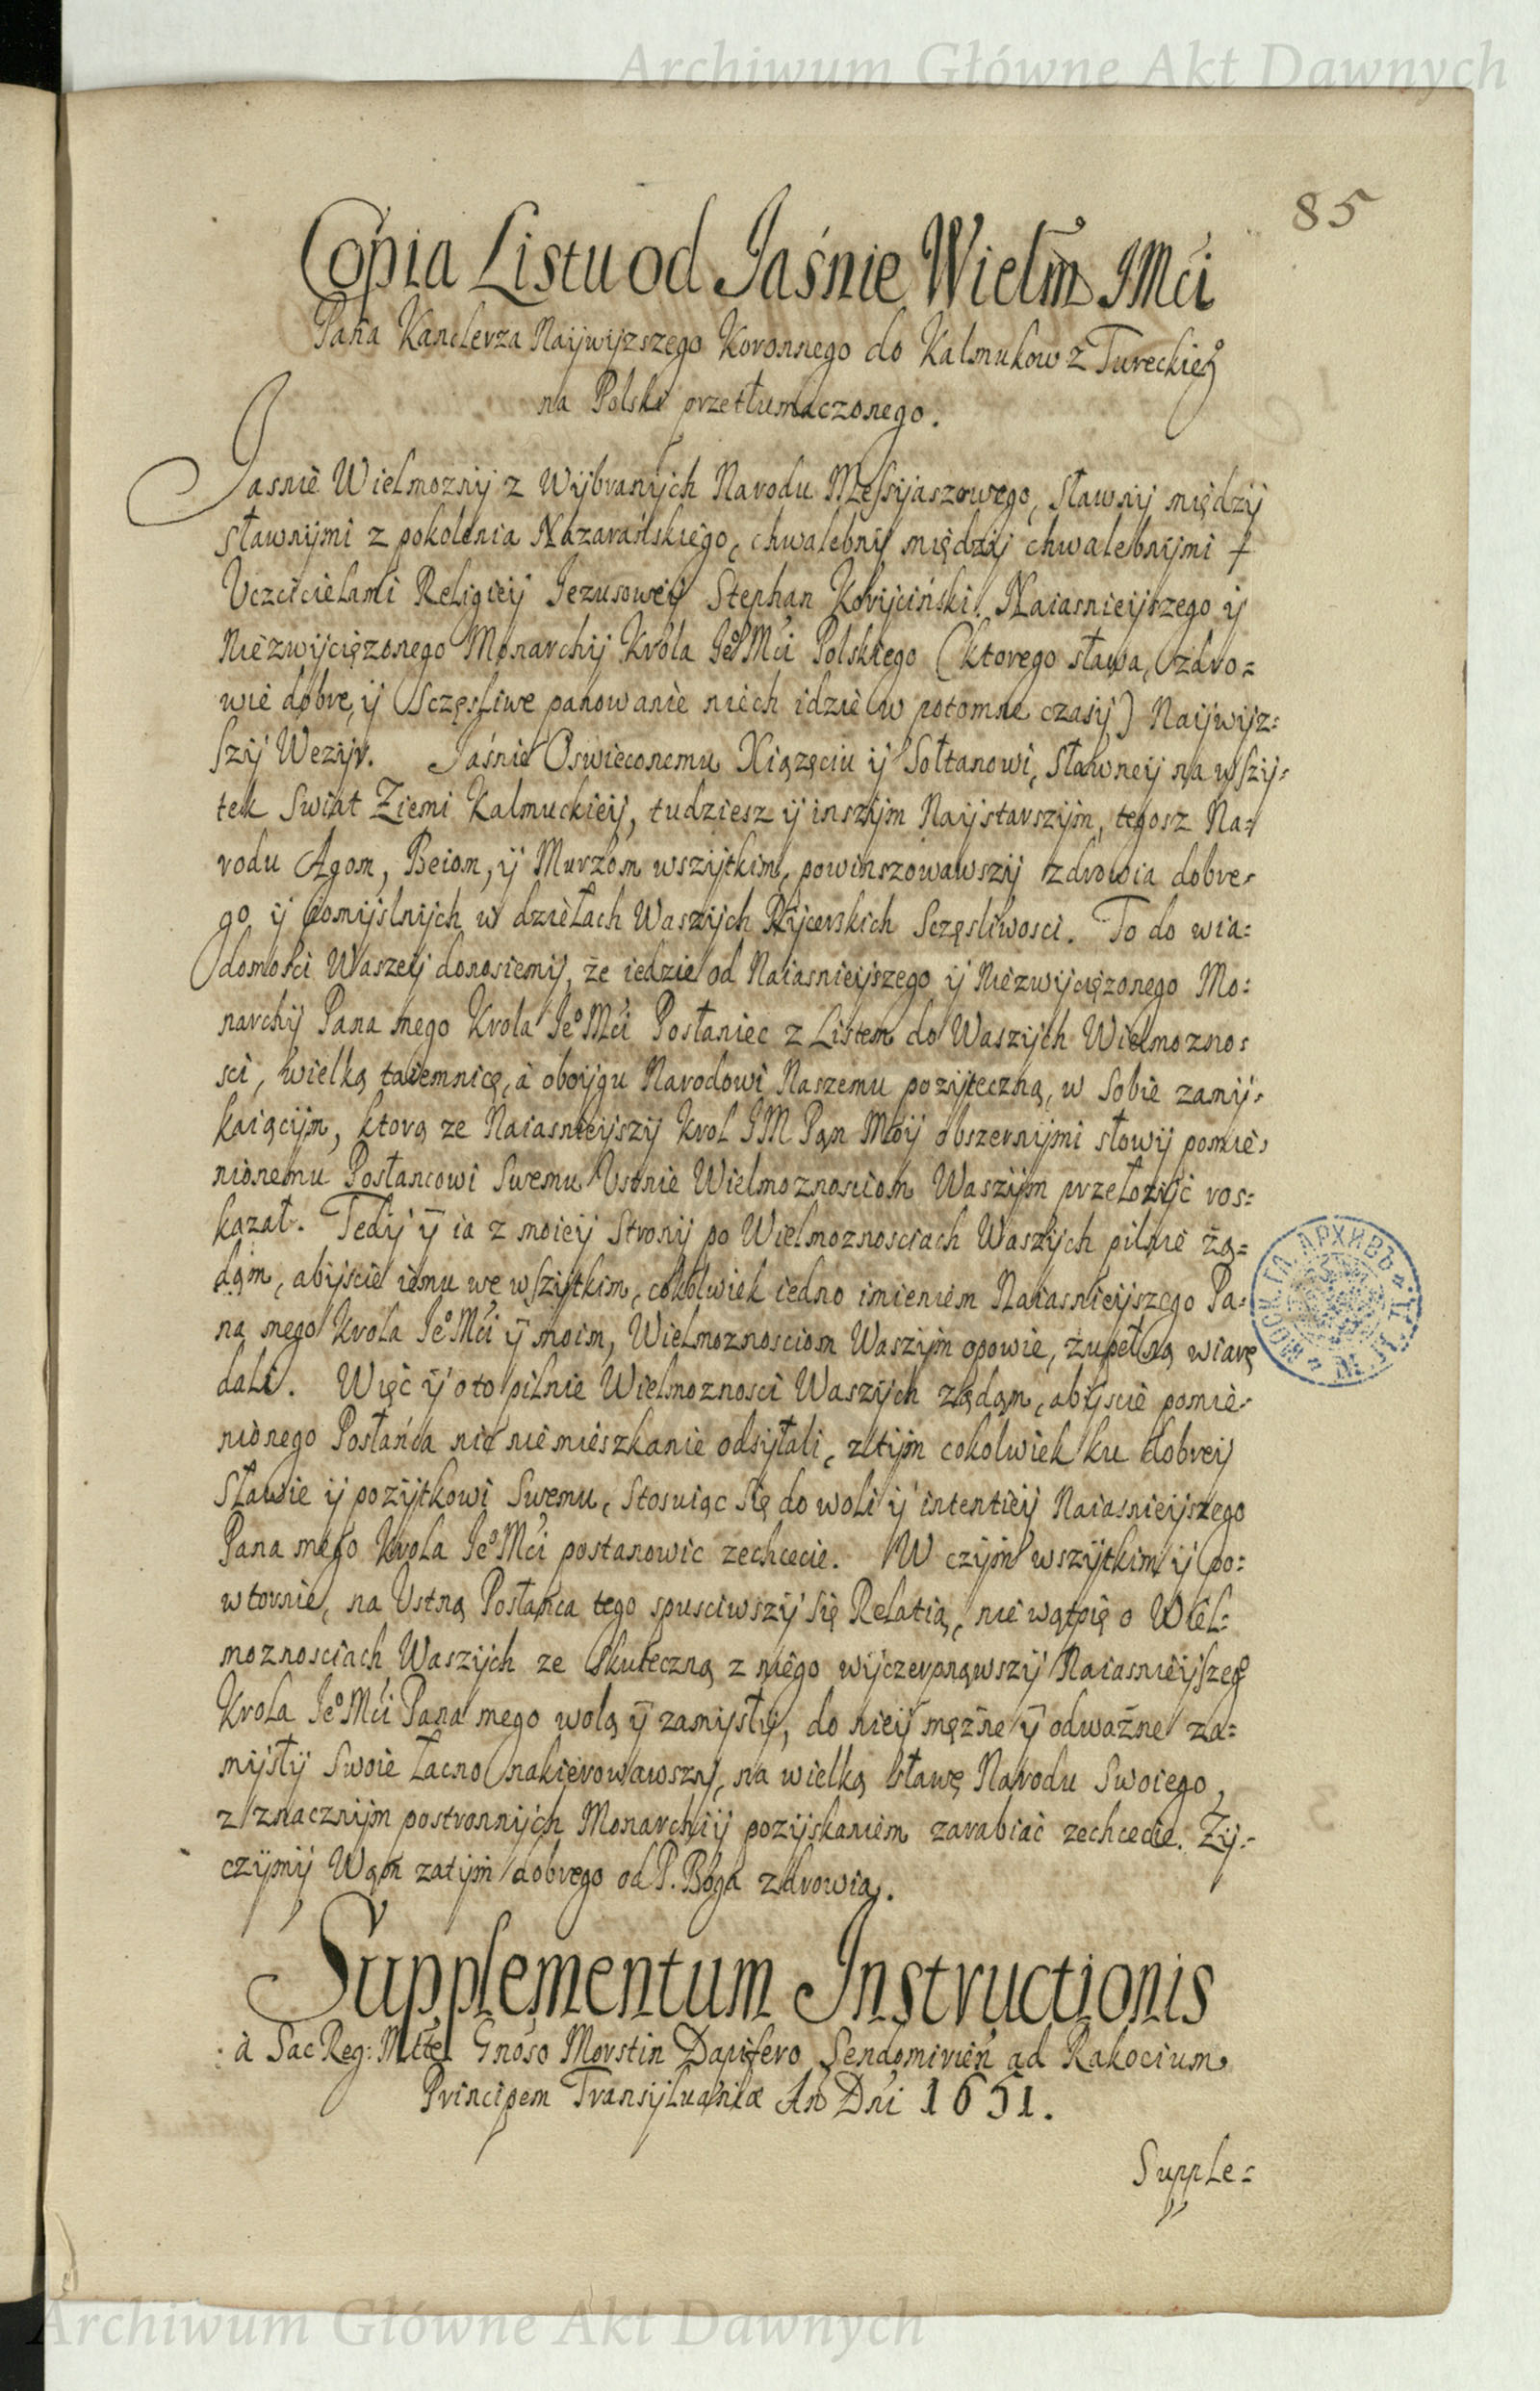 Archiwum Główne Akt Dawnych
85
Copia Listu od Jaśnie Wielm JMći
Pana Kanclerza Naijwijzszego Koronnego do Kalmukow z Tureckie°
na Polski przetłumaczonego.
Jasnie Wielmoznij z Wijbranijch Narodu Messijaszowego, Sławnij międzij
sławnijmi z pokolenia Nazarańskiego, chwalebnij międzij chwalebnijmi
Uczcicielami Religieij Jezusoweij Stephan Korijciński. Naiasnieijszego ij
Niezwijciężonego Monarchij Krola Je°Mći Polskiego (ktorego sława, zdro=
wie dobre, ij Sczęsliwe panowanie niech idzie w potomne czasij) Naijwijz=
szij Wezijr. Jaśnie Oswieconemu Xiązęciu ij Sołtanowi, Sławneij na wszij=
tek Swiat Ziemi Kalmuckieij, tudziesz ij inszijm Naijstarszijm, tegosz Na=
rodu Agom, Beiom, ij Murzom wszijtkim, powinszowawszij zdrowia dobre=
go ij pomijslnijch w dziełach Waszijch Rijcerskich Sczęsliwosci. To do wia=
domosci Waszeij donosiemij, że iedzie od Naiasnieijszego ij Niezwijciężonego Mo=
narchij Pana mego Krola Je°Mći Posłaniec z Listem do Waszijch Wielmozno=
sci, wielką taiemnicę, a oboijgu Narodowi Naszemu pozijteczną, w sobie zamij=
kaiącijm, ktorą ze Naiasnieijszij Krol JM Pan Moij obszernijmi słowij pomie=
nionemu Posłancowi Swemu Ustnie Wielmoznosciom Waszijm przełozijć ros=
kazał. Tedij ij ia z moieij Stronij po Wielmoznosciach Waszijch pilnie żą=
dąm, abijscie iemu we wszijtkim, cokolwiek iedno imieniem Naiasnieijszego Pa=
na mego Krola Je°Mći ij moim, Wielmoznosciom Waszijm opowie, zupełną wiarę
dali. Więc ij oto pilnie Wielmoznosci Waszijch ządąm, abijscie pomie=
nionego Posłańca nie niemieszkanie odsijłali, z tijm cokolwiek ku dobreij
Sławie ij pozijtkowi Swemu, Stosuiąc się do woli ij intentieij Naiasnieijszego
Pana mego Krola Je°Mći postanowic zechcecie. W czijm wszijtkim ij po=
wtornie, na Ustną Posłańca tego spusciwszij się Relatią, nie wątpię o Wiel=
moznosciach Waszijch ze skuteczną z niego wijczerpnąwszij Naiasnieijszeg°
Krola Je°Mći Pana mego wolą ij zamijsłij, do nieij mężne ij odważne za=
mijsłij Swoie łacno nakierowawszij, na wielką sławę Narodu Swoiego,
z znacznijm postronnijch Monarchij pozijskaniem zarabiać zechcecie. Zij=
czijmij Wąm zatijm dobrego od P. Boga zdrowia.
Supplementum Instructionis
à Sac Reg: Mtte Gnoso Morstin Dapifero Sendomirień ad Rakocium
Principem Transijluaniæ An Dni 1651.
Supple=
МОСК. ГЛ. АРХИВЪ
Archiwum Główne Akt Dawnych